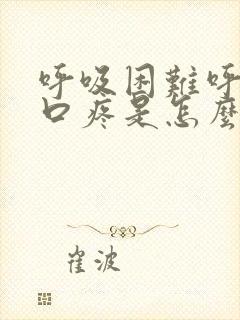 呼吸困難呼
口疼是怎麼
崔波